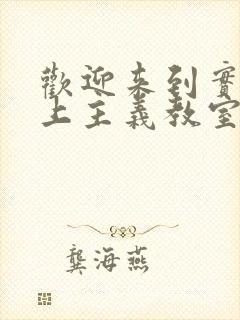 歡迎來到實
上主義教室
龔海燕